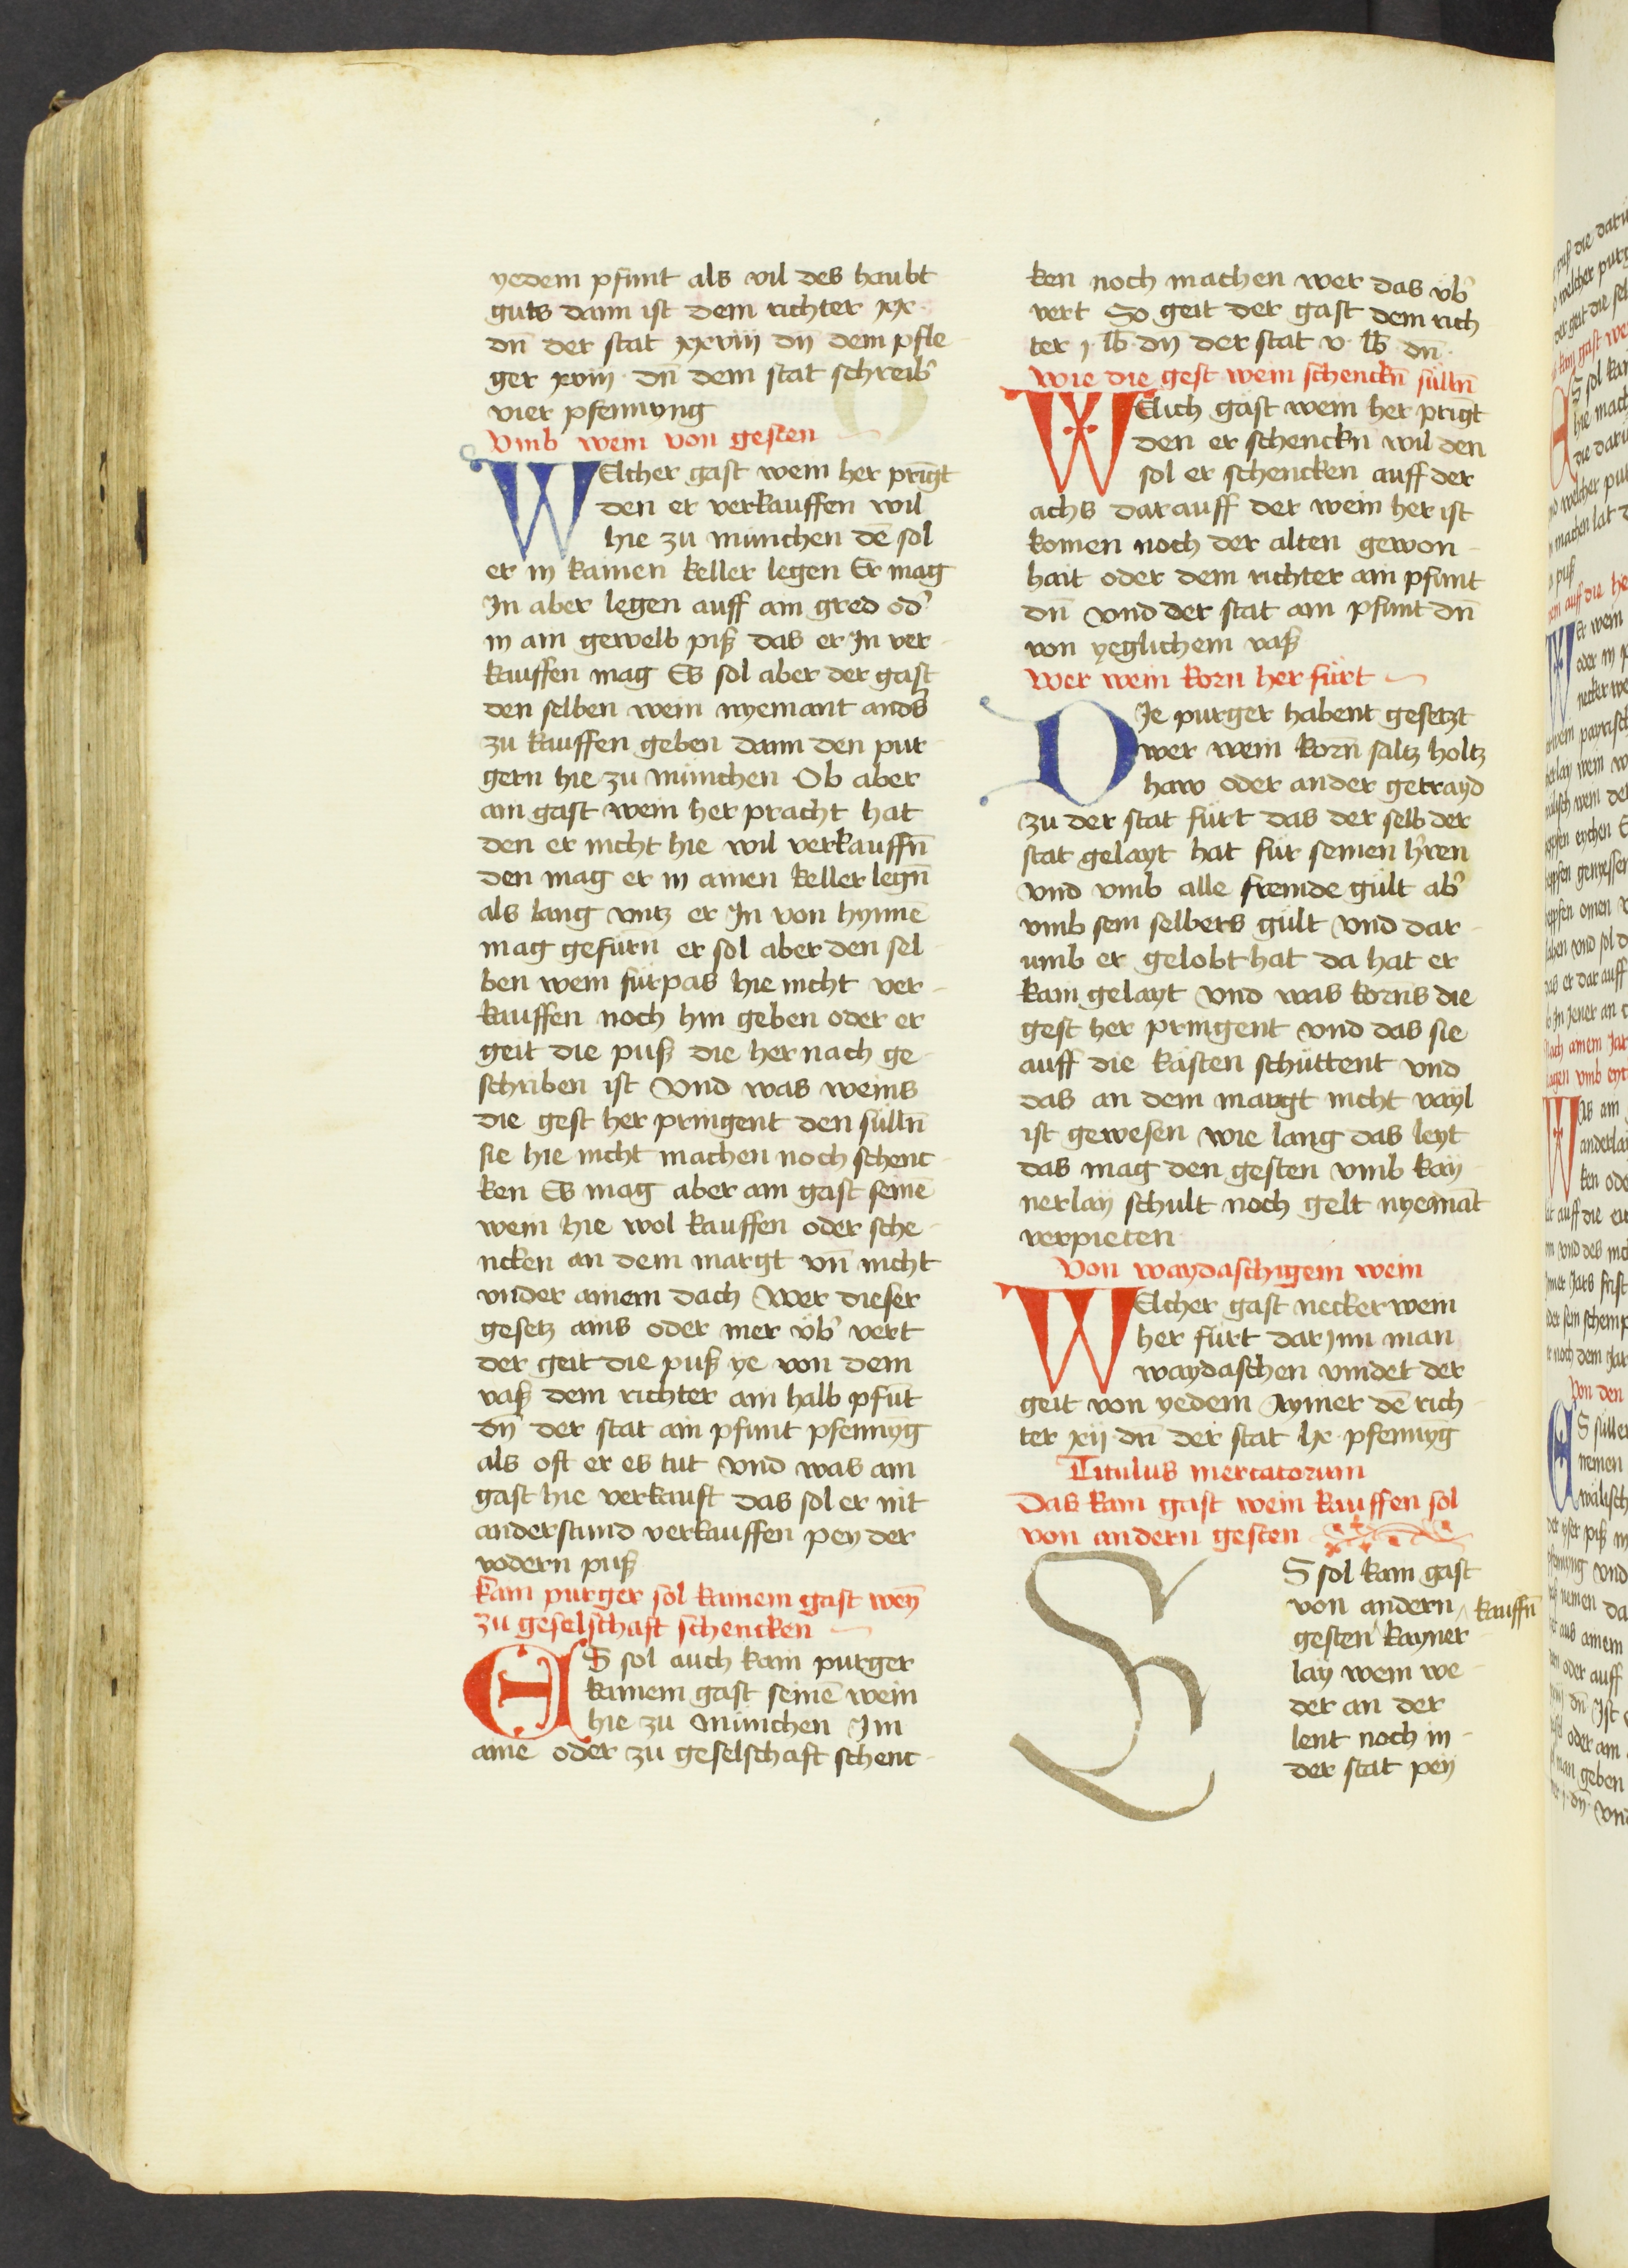 yedem pfunt als vil des haubt
guts dann ist dem richter xx·
dn̄ der stat xxviij dn̄ dem pfle
ger xviij · dn̄ dem stat schreib̾
vier pfennyng
Vmb wein von gesten
WElcher gast wein her pringt
den er verkauffen wil
hie zu münichen dē sol
er in kainen keller legen Er mag
In aber legen auff ain gred od̾
in ain gewelb piß das er In ver
kauffen mag Es sol aber der gast
den selben wein nyemant and̾s
zu kauffen geben dann den pur
gern hie zu münichen Ob aber
ain gast wein her pracht hat
den er nicht hie wil verkauffn̄
den mag er in ainen keller legn̄
als lang vntz er In von hynnē
mag gefürn̄ er sol aber den sel
ben wein fürpas hie nicht ver-
kauffen noch hin geben oder er
geit die puß die her nach ge
schriben ist Vnd was weins
die gest her pringent den sülln̄
sie hie nicht machen noch schenc
ken Es mag aber ain gast seinē
wein hie wol kauffen oder sche
ncken an dem margt vn̄ nicht
vnder ainem dach Wer dieser
gesetz ains oder mer vb̾ vert
der geit die puß ye von dem
vaß dem richter ain halb pfūt
dn̄ der stat ain pfunt pfennyg
als oft er es tut Vnd was ain
gast hie verkauft das sol er nit
anderstund verkauffen pey der
vodern puß
kain purger sol kainem gast wey̅
zu geselschaft schencken
ES sol auch kain purger
kainem gast seinē wein
hie zu Münichen Im
aine oder zu geselschaft schenc-
ken noch machen wer das vb̾
vert So geit der gast dem rich
ter j lb̄ dn̄ der stat v· lb̄ dn̄·
Wie die gest wein schenckn̄ sülln̄
WElich gast wein her pringt
den er schenckn wil den
sol er schencken auff der
achs darauff der wein her ist
komen noch der alten gewon-
hait oder dem richter ain pfunt
dn̄ vnd der stat ain pfunt dn̄
von yeglichem vaß
Wer wein korn her fürt
DIe purger habent gesetzt
wer wein korn̄ saltz holtz
haw oder ander getrayd
zu der stat fürt das der selb der
stat gelayt hat für seinen h̾ren
vnd vmb alle fremde gült ab̾
vmb sein selbers gült Vnd dar-
umb er gelobt hat da hat er
kain gelayt Vnd was korns die
gest her pringent vnd das sie
auff die kästen schüttent vnd
das an dem margt nicht vayl
ist gewesen wie lang das leyt
das mag den gesten vmb kay
nerlay schult noch gelt nyemāt
verpieten
Von waydaschigem wein
WElcher gast neckerwein
her fürt dar Inn man
waydaschen vindet der
geit von yedem Aymer dē rich
ter xij dn̄ der stat lx· pfennyg
Titulus mercatorum
Das kain gast wein kauffen sol
von andern gesten
ES sol kain gast
von andern ʌ kauffn̄
gesten kayner
lay wein we
der an der
lent noch in -
der stat pey